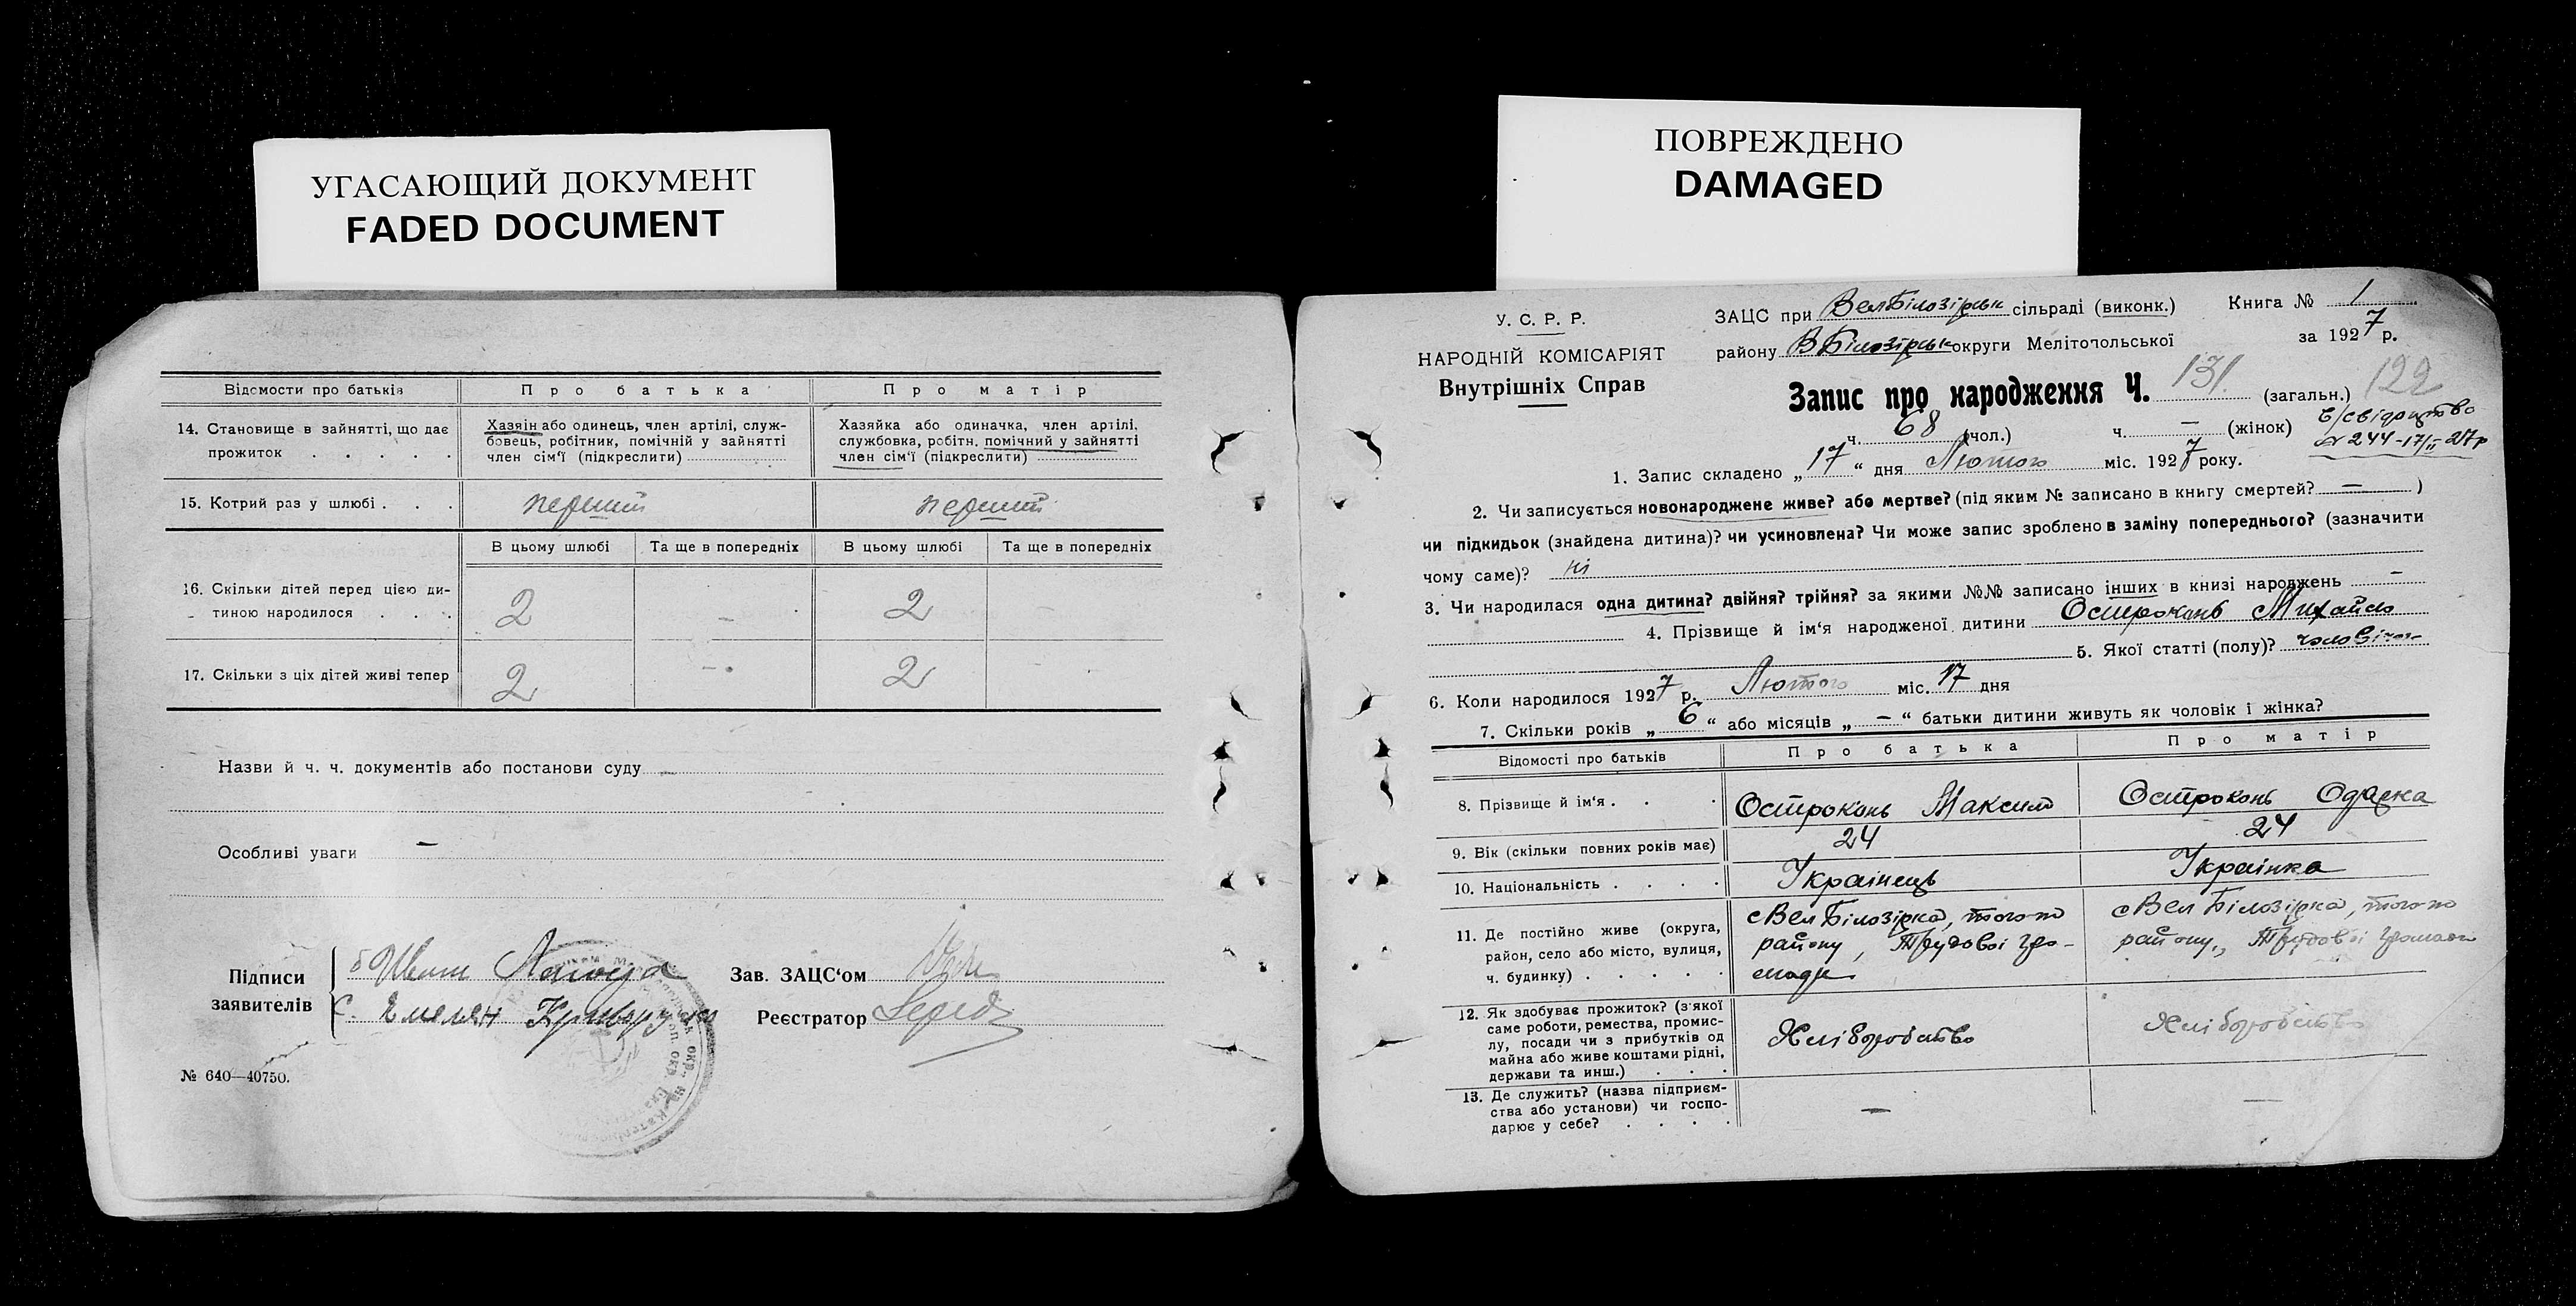 УГАСАЮЩИЙ ДОКУМЕНТ
FADED DOCUMENT
Відомости про батьків
Про батька
Про матір
14. Становище в зайнятті, що дає прожиток . . . . .
Хазяін або одинець, член артілі, служ-
бовець, робітник, помічній у зайнятті
член сім'ї (підкреслити)
Хазяйка або одиначка, член артілі,
службовка, робітн. помічний у зайнятті
член сім'ї (підкреслити)
15. Котрий раз у шлюбі . . .
перший
перший
В цьому шлюбі
Та ще в попередніх
В цьому шлюбі
Та ще в попередніх
16. Скільки дітей перед цією ди-
тиною народилося . . .
2
–
2
–
17. Скільки з ціх дітей живі тепер
2
–
2
–
Назви й ч. ч. документів або постанови суду –
Особливі уваги –
Підписи
заявителів
Зав. ЗАЦС'ом
Емелян
Реєстратор
№ 640—40750.
ПОВРЕЖДЕНО
DAMAGED
У. С. Р. Р.
НАРОДНІЙ КОМІСАРІЯТ
Внутрішніх Справ
ЗАЦС при Вел Білозірськ сільраді (виконк.)
Книга № 1
району В Білозірськ округи Мелітопольської
за 1927 р.
Запис про народження Ч. 131 (загальн.) 122
ч. 68 (чол.) ч. – (жінок)
№ 244-17/II-27р
1. Запис складено „17“ дня Лютого міс. 1927 року.
2. Чи записується новонароджене живе? або мертве? (під яким № записано в книгу смертей? – )
чи підкидьок (знайдена дитина)? чи усиновлена? Чи може запис зроблено в заміну попереднього? (зазначити
чому саме)? ні
3. Чи народилася одна дитина? двійня? трійня? за якими №№ записано інших в книзі народжень –
4. Прізвище й ім'я народженої дитини Остроконь Михайло
5. Якої статті (полу)?
6. Коли народилося 1927 р. Лютого міс. 17 дня
7. Скільки років „6“ або місяців „–“ батьки дитини живуть як чоловік і жінка?
Відомості про батьків
Про батька
Про матір
8. Прізвище й ім'я . . .
Остроконь Максим
Остроконь Одарка
9. Вік (скільки повних років має)
24
24
10. Національність . . . .
Українець
Українка
11. Де постійно живе (округа,
район, село або місто, вулиця,
ч. будинку) . . . . .
с Вел Білозірка, того-по
району, Трудової гро-
мади
с Вел Білозірка, того-по
району, Трудової громади
12. Як здобуває прожиток? (з якої
саме роботи, ремества, промис-
лу, посади чи з прибутків од
майна або живе коштами рідні,
держави та инш.) . . .
Хліборобство
Хліборобство
13. Де служить? (назва підприєм-
ства або установи) чи госпо-
дарює у себе? . . . .
–
–